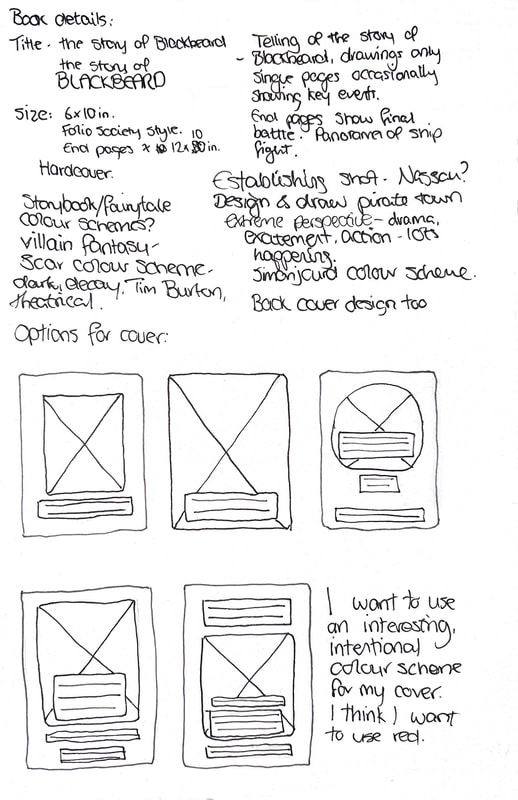 Book details:
Title - the story of Blackbeard
the story of
BLACKBEARD
Size: 6x10 in.
Folio Society Style.
End pages x 12x10 in.
Hardcover.
Storybook/fairytale
colour schemes?
villain fantasy-
Scar colour scheme-
dark, decay, Tim Burton,
theatrical.
Telling of the story of
- Blackbeard, drawings only
Single pages occasionally
showing key events.
End pages show final
battle. Panorama of ship
fight.
Establishing shot - Nassau?
Design & draw pirate town
extreme perspective - drama,
excitement, action - lots
happening.
colour scheme.
Back cover design too
Options for cover:
I want to use
an interesting,
intentional
colour scheme
for my cover.
I think I want
to use red.